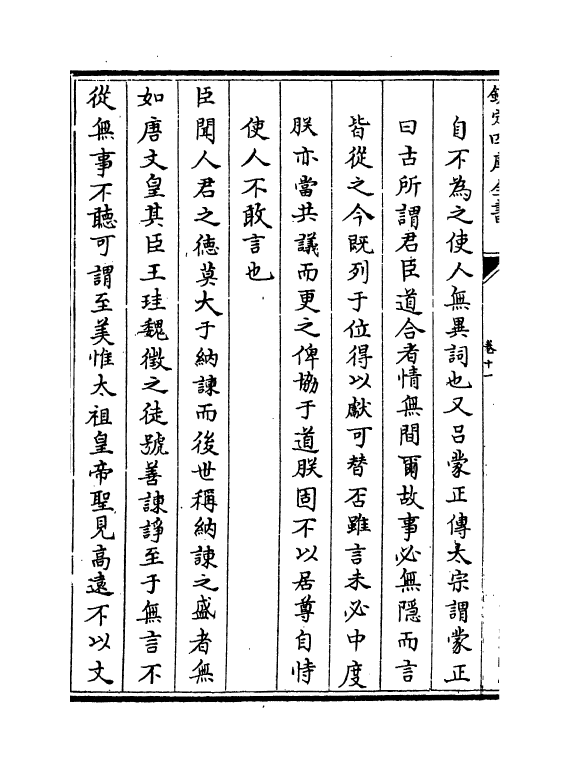 欽定四庫全書
卷十一
自不為之使人無異詞也又呂蒙正傳太宗謂蒙正
曰古所謂君臣道合者情無間爾故事必無隱而言
皆從之今既列于位得以獻可替否雖言未必中度
朕亦當共議而更之俾協于道朕固不以居尊自恃
使人不敢言也
臣聞人君之徳莫大于納諫而後世稱納諫之盛者無
如唐文皇其臣王珪魏徵之徒號善諫諍至于無言不
從無事不聽可謂至美惟太祖皇帝聖見髙遠不以文